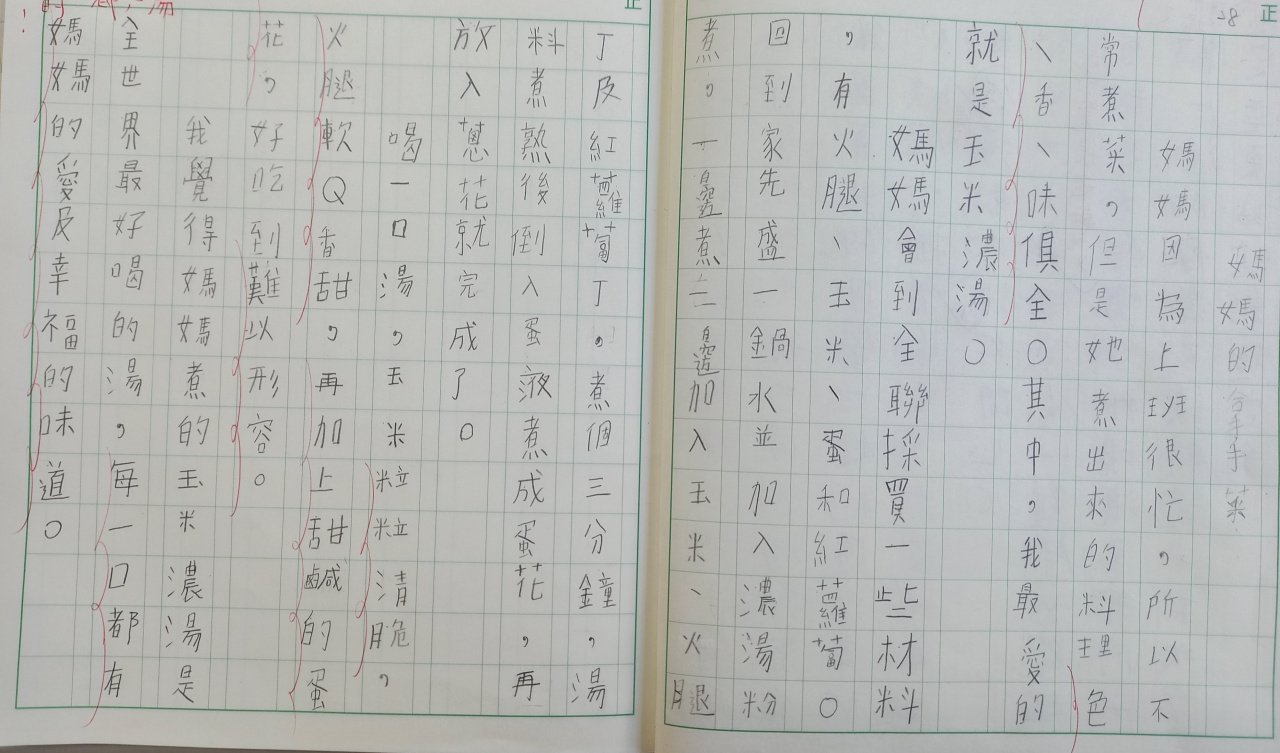 28
正
媽媽的拿手菜
媽媽因為上班很忙，所以不
常煮菜，但是她煮出來的料理色
、香、味俱全。其中，我最愛的
就是玉米濃湯。
媽媽會到全聯採買一些材料
，有火腿、玉米、蛋和紅蘿蔔。
回到家先盛一鍋水並加入濃湯粉
煮，一邊煮一邊加入玉米、火腿
丁及紅蘿蔔丁。煮個三分鐘，湯
料煮熟後倒入蛋液煮成蛋花，再
放入蔥花就完成了。
喝一口湯，玉米粒粒清脆，
火腿軟Q香甜，再加上甜鹹的蛋
花，好吃到難以形容。
我覺得媽媽煮的玉米濃湯是
全世界最好喝的湯，每一口都有
媽媽的愛及幸福的味道。
正